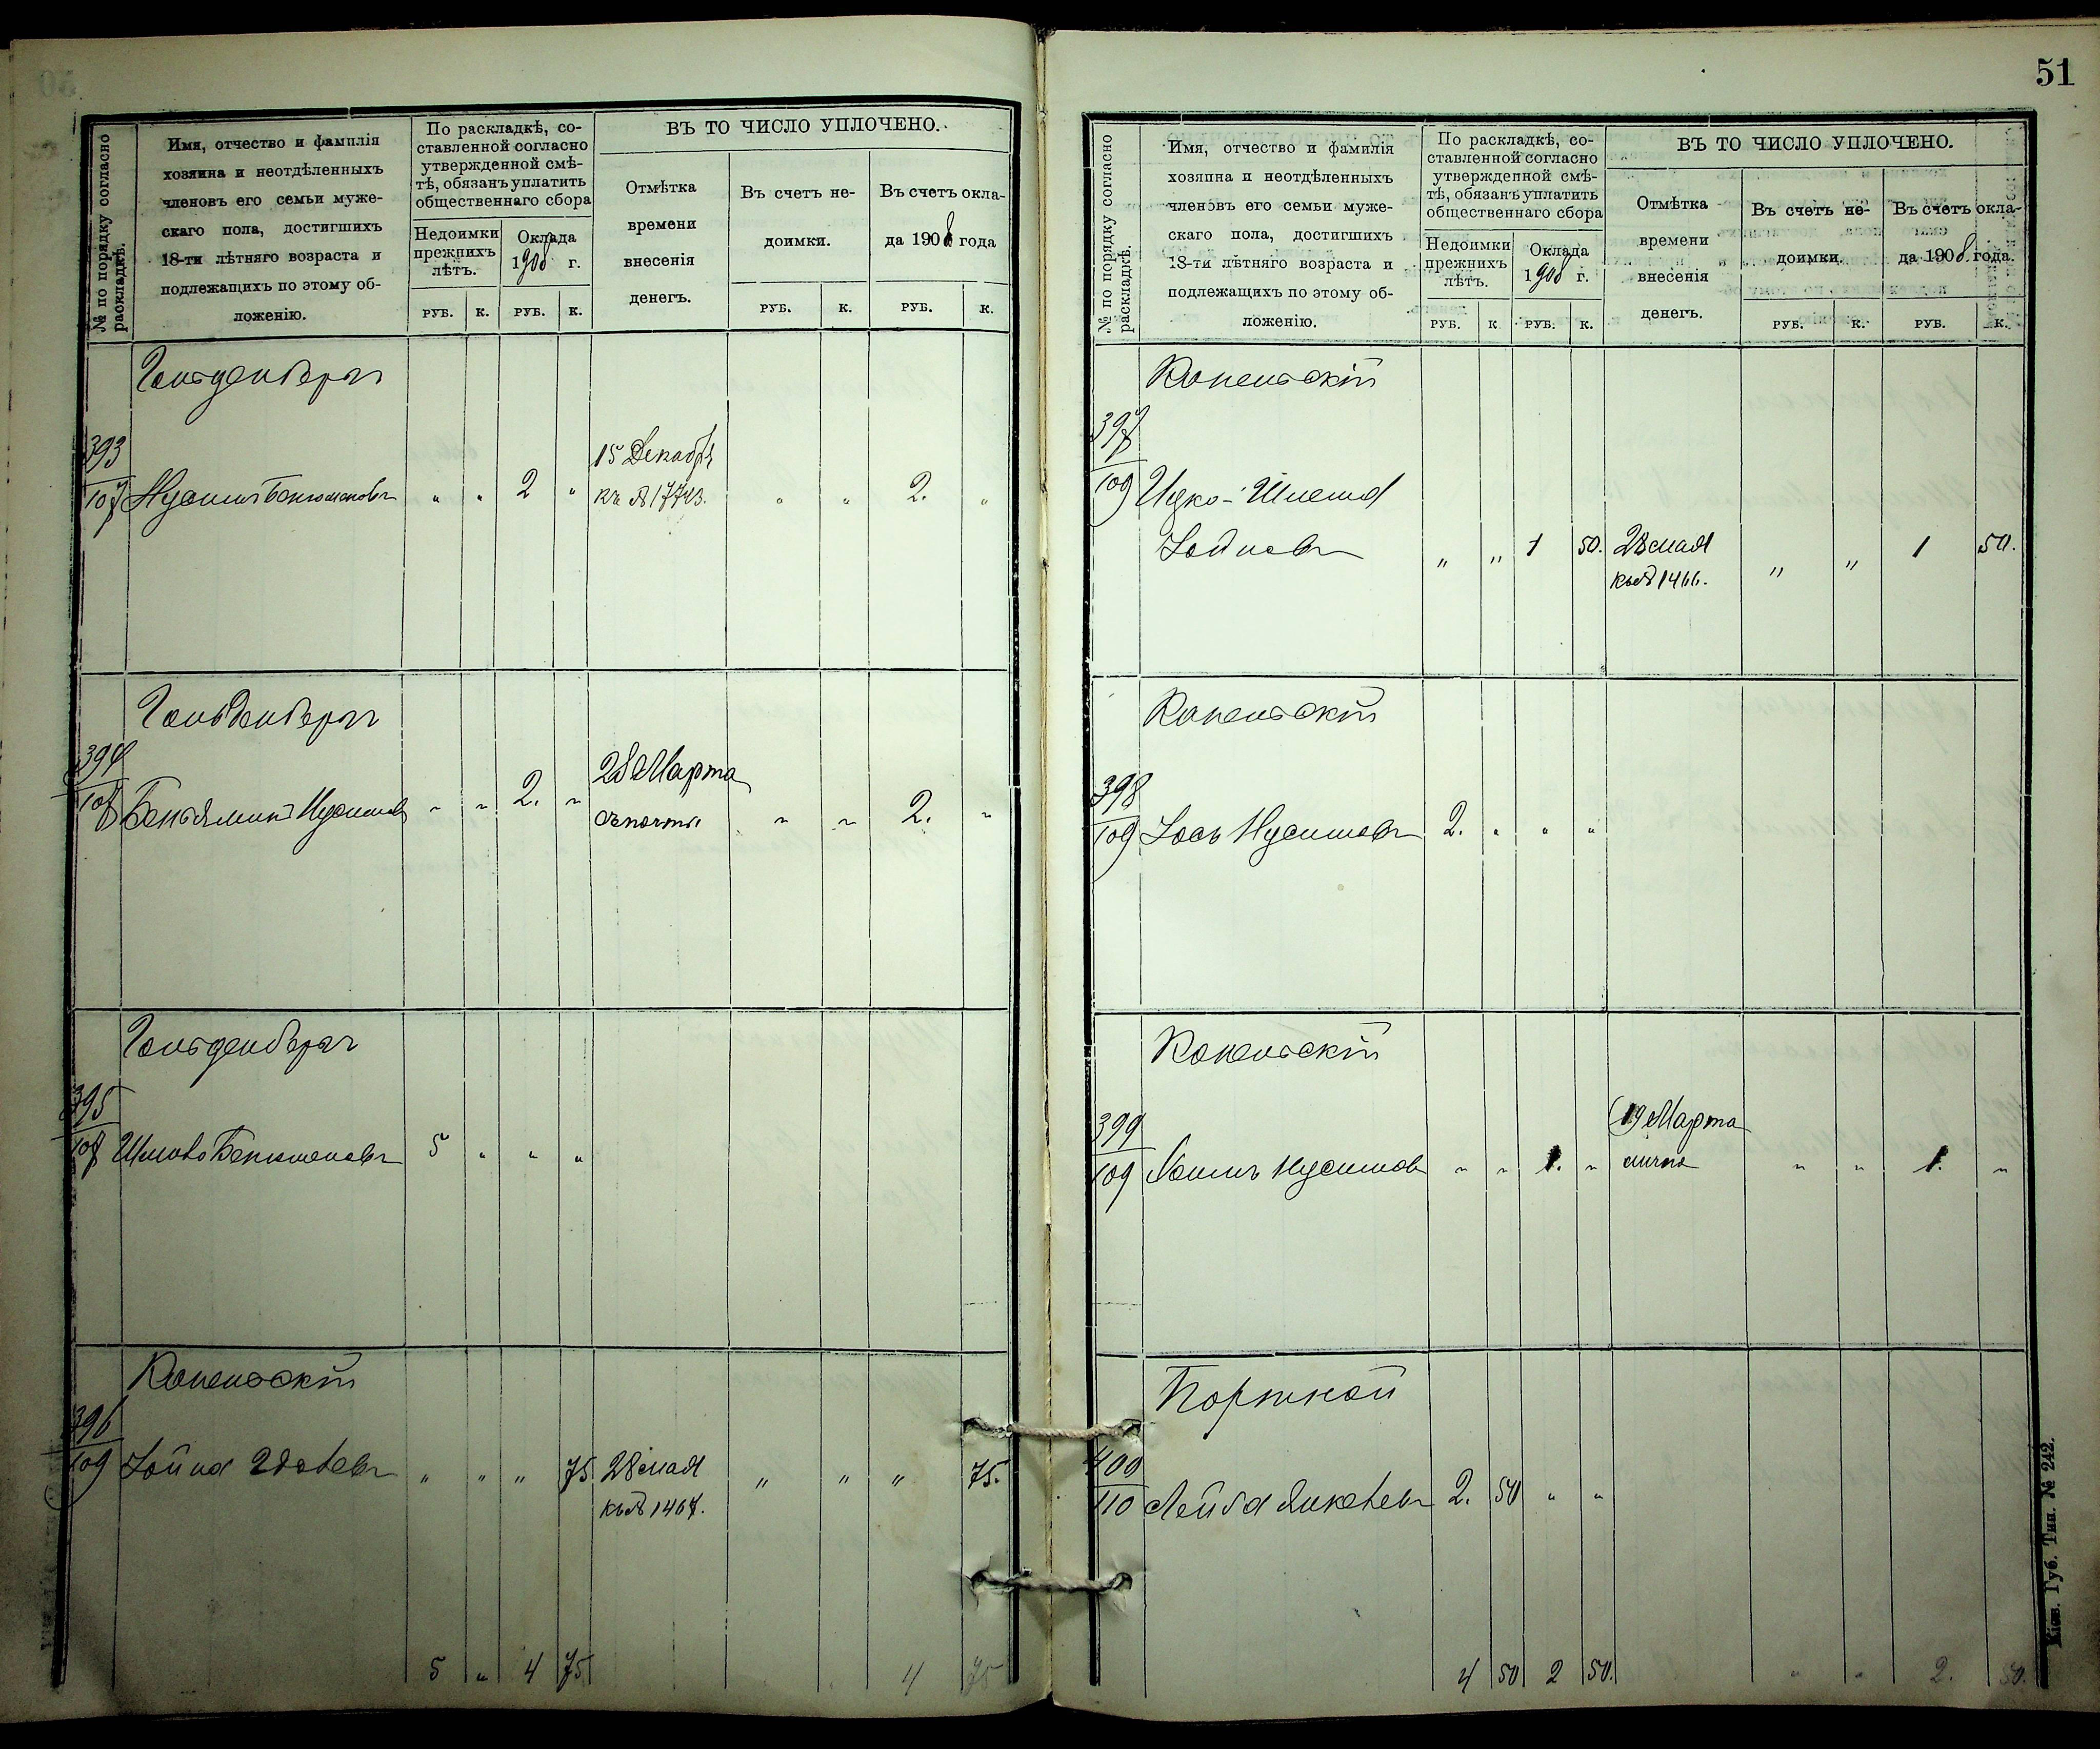 № по порядку согласно раскладкѣ.
Имя, отчество и фамилія
хозяина и неотдѣленныхъ
членовъ его семьи муже-
скаго пола, достигшихъ
18-ти лѣтняго возраста и
подлежащихъ по этому об-
ложенію.
По раскладкѣ, со-
ставленной согласно
утвержденной смѣ-
тѣ, обязанъ уплатить
общественнаго сбора
Недоимки
прежнихъ
лѣтъ.
Оклада
1908 г.
РУБ. К. РУБ. К.
ВЪ ТО ЧИСЛО УПЛОЧЕНО.
Отмѣтка
времени
внесенія
денегъ.
Въ счетъ не-
доимки.
Въ счетъ окла-
да 1908 года
РУБ. К. РУБ. К.
Гольденбергъ
393
107 Нусимъ Беньяминовъ " " 2 " 15 Декабря " " 2. "
къ № 17743.
Гольденбергъ
394
107 Беньяминъ Нусимовъ " " 2. " 28 Марта " " 2. "
съ почты
Гольденбергъ
395
107 Шмовъ 5 " " "
Копельскій
396
109 Іойна " " " 75 28 мая " " " 75.
къ № 1467.
5 " 4 75 4 75
51
№ по порядку согласно раскладкѣ.
Имя, отчество и фамилія
хозяина и неотдѣленныхъ
членовъ его семьи муже-
скаго пола, достигшихъ
18-ти лѣтняго возраста и
подлежащихъ по этому об-
ложенію.
По раскладкѣ, со-
ставленной согласно
утвержденной смѣ-
тѣ, обязанъ уплатить
общественнаго сбора
Недоимки
прежнихъ
лѣтъ.
Оклада
1908 г.
РУБ. К РУБ. К.
ВЪ ТО ЧИСЛО УПЛОЧЕНО.
Отмѣтка
времени
внесенія
денегъ.
Въ счетъ не-
доимки.
Въ счетъ окла-
да 1908 года.
РУБ. К. РУБ. К.
Копельскій
397
109 Ицко-Шлема
Іойновъ " " 1 50. 28 мая " " 1 50.
къ № 1466.
Копельскій
398
109 Іось Нусимовъ 2. " " "
Копельскій
399
109 Хаимъ Нусимовъ " " 1. " 19 Марта " " 1. "
лично
Портной
400
110 Лейба Янкелевъ 2. 50 " "
4 50 2 50. " " 2. 50.
Кіев. Губ. Тип. № 242.